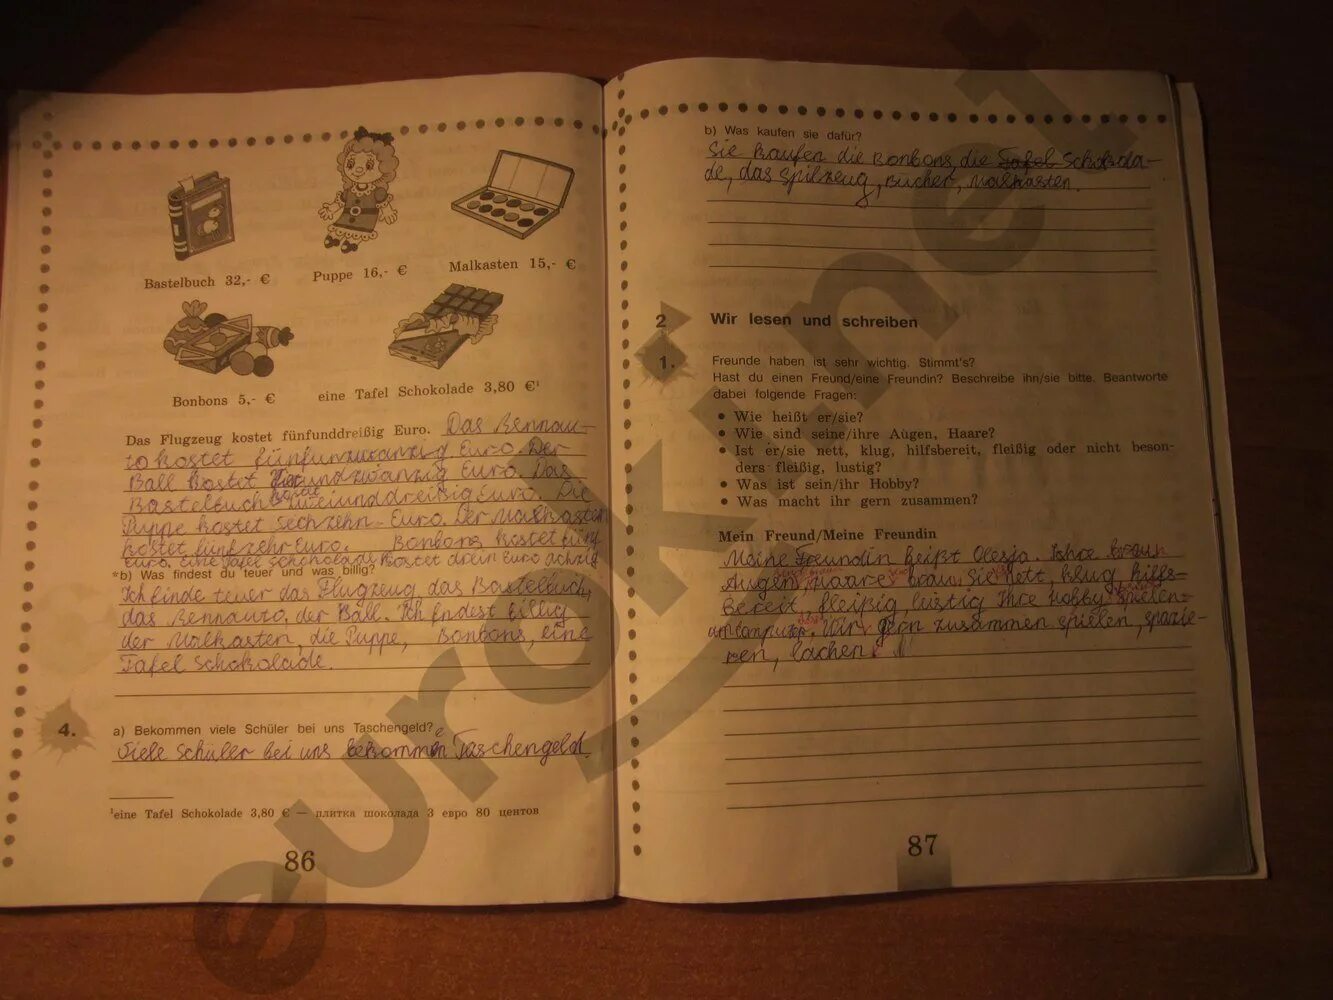 Bastelbuch 32,- €
Puppe 16,- €
Malkasten 15,- €
Bonbons 5,- €
eine Tafel Schokolade 3,80 €¹
Das Flugzeug kostet fünfunddreißig Euro. Das Rennau-
to kostet fünfunzwanzig Euro. Der
Ball kostet vierundzwanzig Euro. Das
Bastelbuch kostet zweiunddreißig Euro. Die
Puppe kostet sechzehn Euro. Der Malkasten
kostet fünfzehn Euro. Bonbons kostet fünf
Euro. eine Tafel Schokolade kostet drein Euro achzig
*b) Was findest du teuer und was billig?
Ich finde teuer das Flugzeug das Bastelbuch,
das Rennauto, der Ball. Ich findest billig
der Malkasten, die Puppe, Bonbons, eine
Tafel Schokolade.
4.
a) Bekommen viele Schüler bei uns Taschengeld?
Viele Schüler bei uns bekommen Taschengeld.
¹eine Tafel Schokolade 3,80 € — плитка шоколада 3 евро 80 центов
86
b) Was kaufen sie dafür?
Sie kaufen die Bonbons, die Tafel Schokola-
de, das Spilzeug, Bücher, Malkasten.
2 Wir lesen und schreiben
1.
Freunde haben ist sehr wichtig. Stimmt's?
Hast du einen Freund/eine Freundin? Beschreibe ihn/sie bitte. Beantworte
dabei folgende Fragen:
• Wie heißt er/sie?
• Wie sind seine/ihre Augen, Haare?
• Ist er/sie nett, klug, hilfsbereit, fleißig oder nicht beson-
ders fleißig, lustig?
• Was ist sein/ihr Hobby?
• Was macht ihr gern zusammen?
Mein Freund/Meine Freundin
Meine Freundin heißt Olesja. Ihre braun
Augen, Haare braun. Sie nett, klug hilfs-
bereit, fleißig, lustig Ihre Hobby spielen
am Computer. Wir gern zusammen spielen, spazie-
ren, lachen.
87
euroki.net